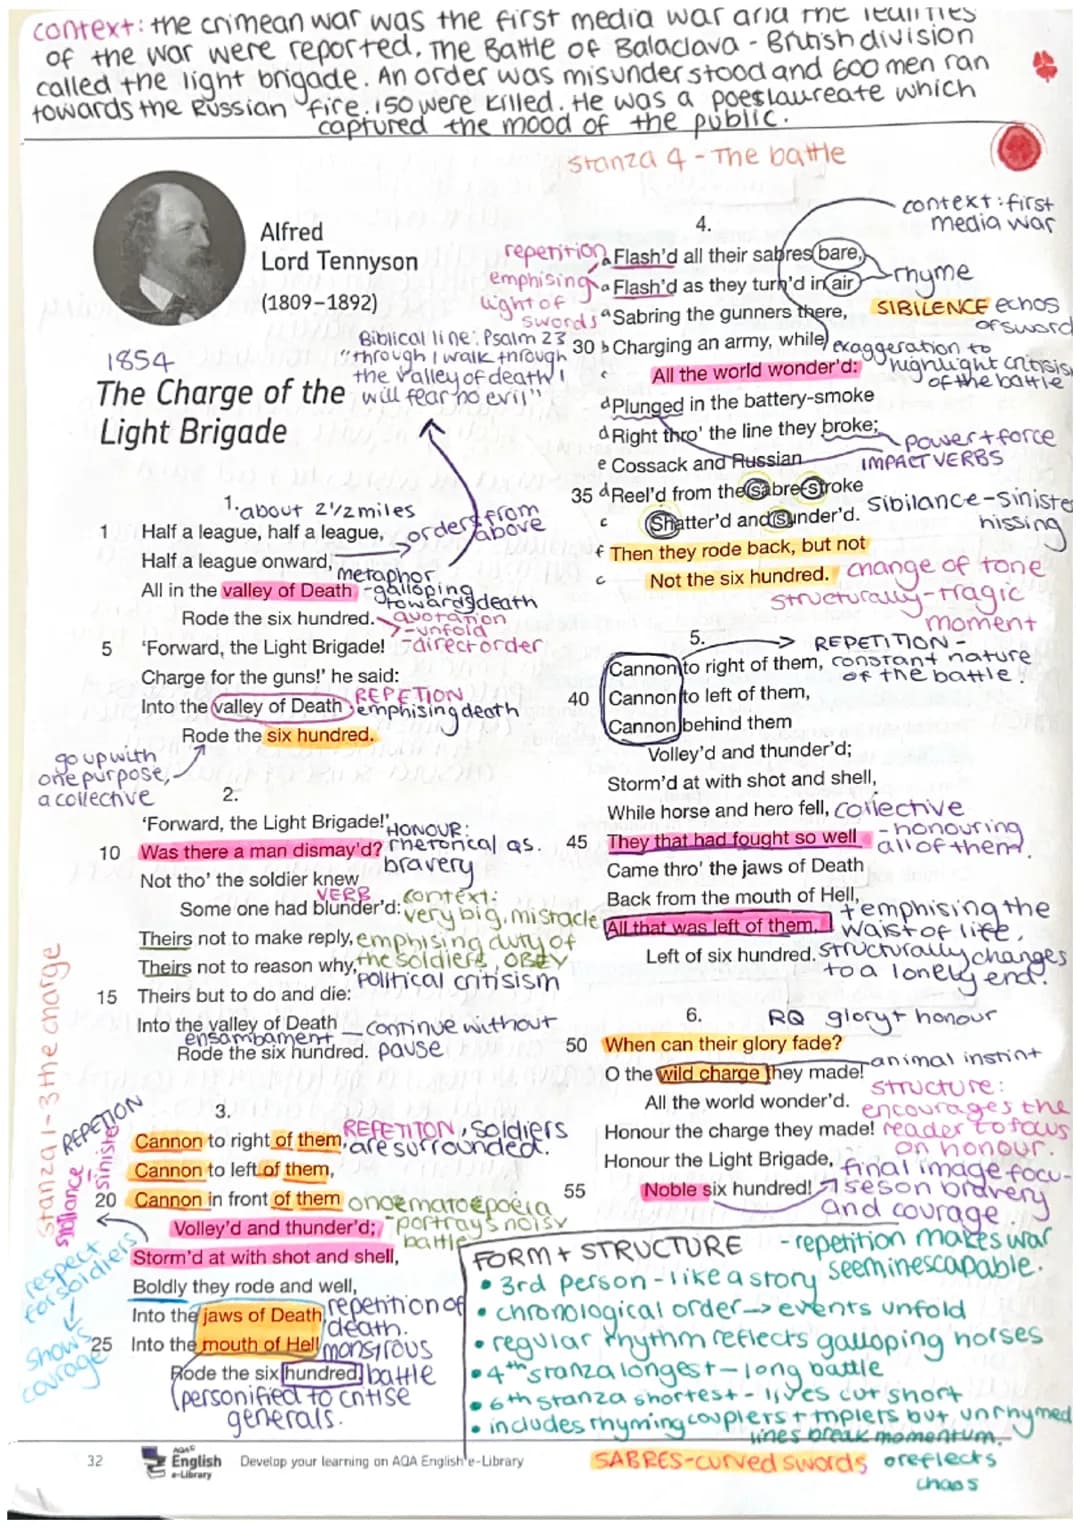 context: the crimean war was the first media war and the realities
of the war were reported. The Battle of Balaclava - British division
called the light brigade. An order was misunderstood and 600 men ran
towards the Russian fire. 150 were killed. He was a poet laureate which
captured the mood of the public.
Stanza 4 - The battle
Alfred
Lord Tennyson
(1809–1892)
1854
The Charge of the
Light Brigade
Biblical line: Psalm 23
"through I walk through
the valley of death I
will fear no evil"
1.
about 2½ miles
1 Half a league, half a league,
orders from
above
Half a league onward,
metaphor
All in the valley of Death
-galloping
towards death
Rode the six hundred.
quotation
-unfold
5 'Forward, the Light Brigade!
-direct order
Charge for the guns!' he said:
Into the valley of Death
REPETION
emphising death
Rode the six hundred.
go up with
one purpose,
a collective
2.
'Forward, the Light Brigade!'
HONOUR:
10 Was there a man dismay'd?
rhetorical qs.
bravery
Not tho' the soldier knew
VERB
Some one had blunder'd:
context:
very big, mistacke
Theirs not to make reply,
emphising duty of
Theirs not to reason why,
the soldiers, OBEY
political critisism
15 Theirs but to do and die:
Into the valley of Death
ensambament
continue without
pause
Rode the six hundred.
Stanza 1-3 the charge
3.
REPETION
sinister
Cannon to right of them,
REPETITON, soldiers
are surrounded.
Cannon to left of them,
20 Cannon in front of them
onoematoepoeia
-portrays noisy
battle
Volley'd and thunder'd;
Storm'd at with shot and shell,
respect
for soldiers
shows
courage
Boldly they rode and well,
Into the jaws of Death,
repetition of
death.
25 Into the mouth of Hell
monstrous
Rode the six hundred.
battle
personified to critise
generals.
4.
context: first
media war
repetition
emphising
light of
swords
a Flash'd all their sabres bare,
a Flash'd as they turn'd in air
rhyme
a Sabring the gunners there,
SIBILENCE echos
of sword
30 b Charging an army, while
exaggeration to
highlight critisis
of the battle
c All the world wonder'd:
d Plunged in the battery-smoke
d Right thro' the line they broke;
power + force
IMPACT VERBS
e Cossack and Russian
35 d Reel'd from the sabre-stroke
Sibilance - siniste
hissing
c Shatter'd and sunder'd.
f Then they rode back, but not
c Not the six hundred.
change of tone
structurally - tragic
moment
5.
REPETITION -
constant nature
of the battle
Cannon to right of them,
40 Cannon to left of them,
Cannon behind them
Volley'd and thunder'd;
Storm'd at with shot and shell,
While horse and hero fell,
collective
- honouring
all of them.
45 They that had fought so well
Came thro' the jaws of Death
Back from the mouth of Hell,
All that was left of them,
+ emphising the
waist of life.
Left of six hundred.
structurally changes
to a lonely end.
6.
RQ glory + honour
50 When can their glory fade?
O the wild charge they made!
animal instint
All the world wonder'd.
structure:
encourages the
reader to focus
on honour.
Honour the charge they made!
Honour the Light Brigade,
final image focu-
seson bravery
and courage.
55 Noble six hundred!
FORM + STRUCTURE
- repetition makes war
seem inescapable.
• 3rd person - like a story
• chronological order → events unfold
• regular rhythm reflects galloping horses
• 4th stanza longest - long battle
• 6th stanza shortest - lives cut short
• includes rhyming couplers + triplers but unrhymed
lines break momentum.
reflects
chaos
SABRES - curved swords
32
AQA
English
e-Library
Develop your learning on AQA English e-Library